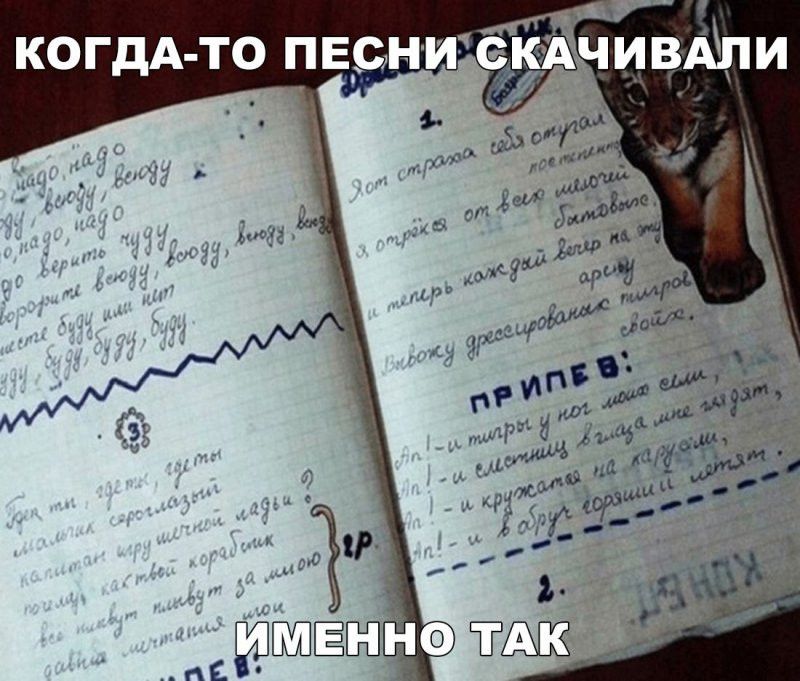 КОГДА-ТО ПЕСНИ СКАЧИВАЛИ
надо, надо
всюду, всюду
надо, надо
верить чуду
всюду, всюду, всюду, всюду
буду или нет
буду, буду, буду, буду.
3
где ты, где ты
мальчик сероглазый
капитан игрушечной ладьи?
почему, как твой кораблик
все плывут за мною
давние мечтания мои
2р.
1.
Я от страха себя отучал
постепенно,
я отрёкся от всех мелочей
бытовых.
и теперь каждый вечер на эту
арену
Вывожу дрессированных тигров
своих.
ПРИПЕВ:
Ап! - и тигры у ног моих сели,
Ап! - и с лестниц в глаза мне глядят,
Ап! - и кружатся на карусели,
Ап! - и в обруч горящий летят.
2.
КОНЕЦ
ИМЕННО ТАК